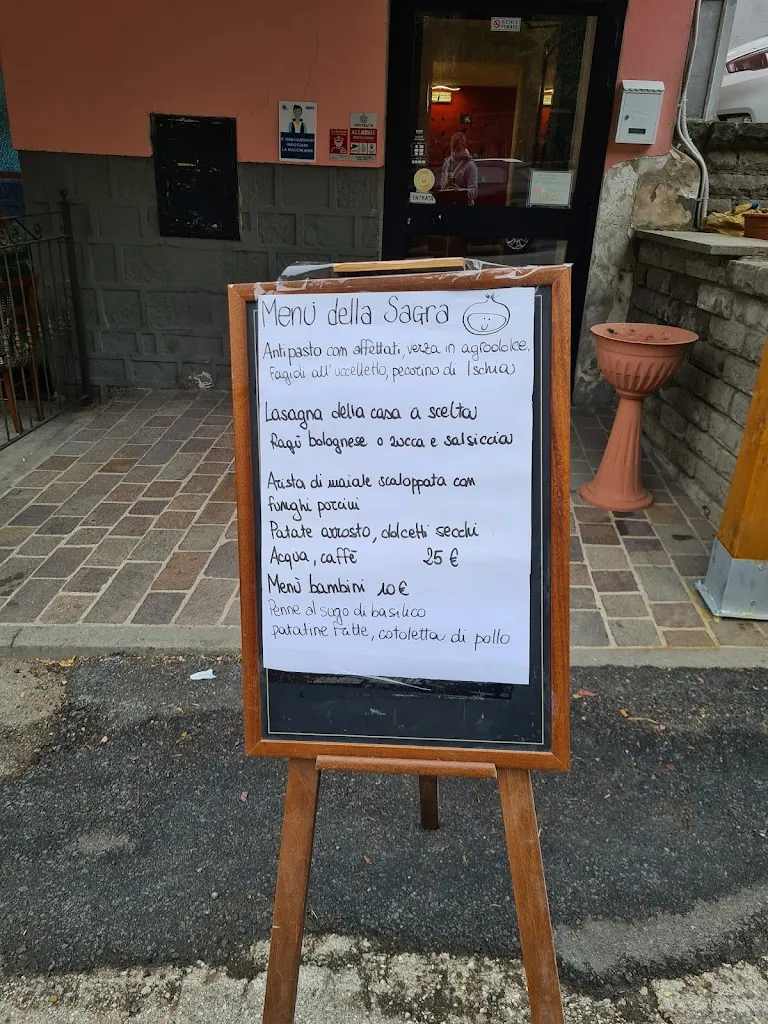 Menù della Sagra
Antipasto con affettati, verza in agrodolce.
Fagioli all'uccelletto, pecorino di Ischia
Lasagna della casa a scelta
Ragù bolognese o zucca e salsiccia
Arista di maiale scaloppata con
funghi porcini
Patate arrosto, dolcetti secchi
Acqua, caffè 25 €
Menù bambini 10 €
Penne al sugo di basilico
patatine fritte, cotoletta di pollo
È OBBLIGATORIO
INDOSSARE
LA MASCHERINA
ALLARME
VIETATO
FUMARE
ENTRATA